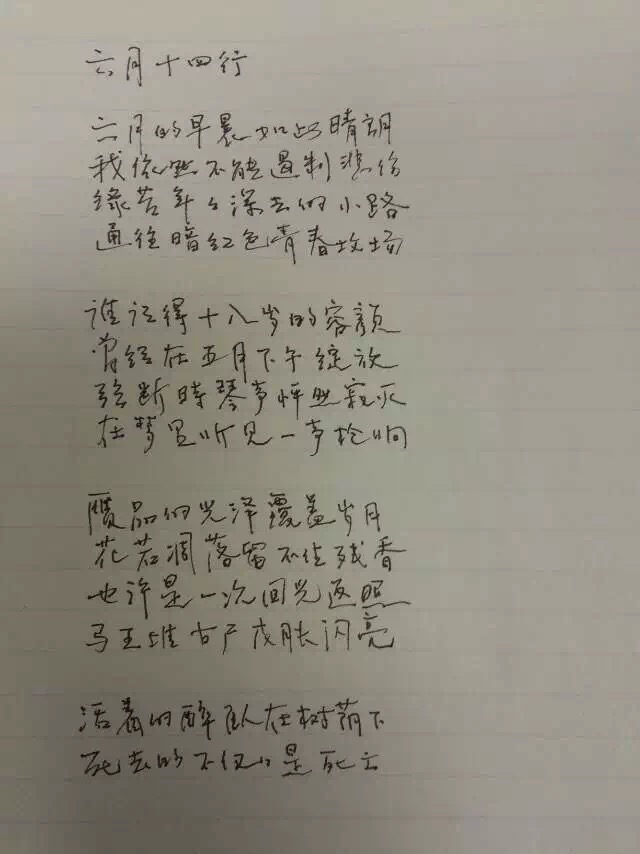 六月十四行
六月的早晨如此晴朗
我依然不能遏制悲伤
绿苔年年深去的小路
通往暗红色青春坟场
谁记得十八岁的容颜
曾经在五月下午绽放
弦断時琴声怦然寂灭
在梦里听见一声枪响
赝品的光泽覆盖岁月
花若凋落留不住残香
也许是一次回光返照
马王堆古尸皮肤闪亮
活着的醉卧在树荫下
死去的不仅仅是死亡